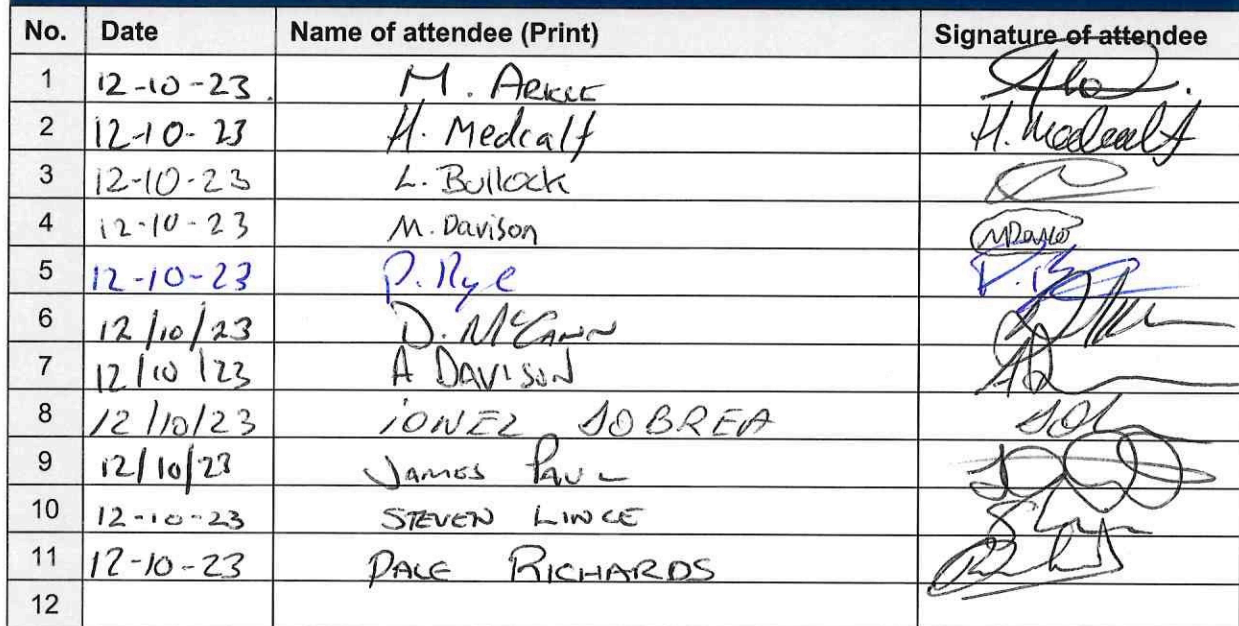 No. Date Name of attendee (Print) Signature of attendee
1 12-10-23 M.
2 12-10-23 H. Medcalf H. Medcalf
3 12-10-23 L. Bullock
4 12-10-23 M. Davison
5 12-10-23 P. Rye
6 12/10/23 D. McCann
7 12/10/23 A DAVISON
8 12/10/23 IONEL DOBREA
9 12/10/23 JAMES PAUL
10 12-10-23 STEVEN LINCE
11 12-10-23 DALE RICHARDS
12